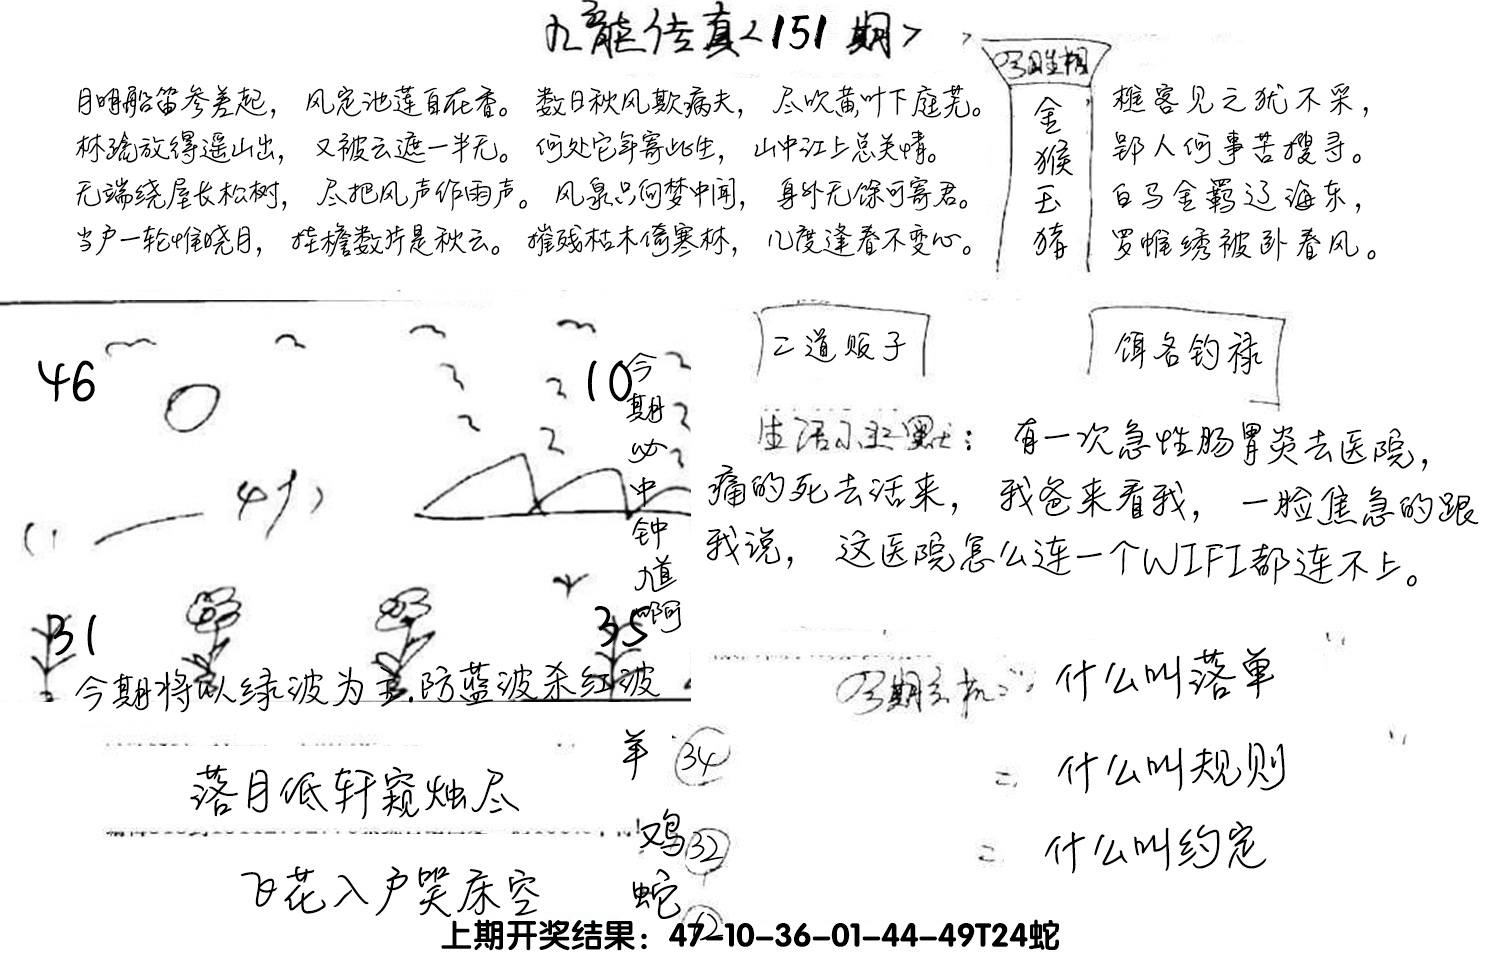 九龙传真<151期>
月明船笛参差起，风定池莲自在香。数日秋风欺病夫，尽吹黄叶下庭芜。
林疏放得遥山出，又被云遮一半无。何处它年寄此生，山中江上总关情。
无端绕屋长松树，尽把风声作雨声。风泉只向梦中闻，身外无馀可寄君。
当户一轮惟晓月，挂檐数片是秋云。摧残枯木倚寒林，几度逢春不变心。
金
猴
玉
猪
樵客见之犹不采，
郢人何事苦搜寻。
白马金羁辽海东，
罗帷绣被卧春风。
46
10
今期必中钟馗啊
31
35
今期将以绿波为主.防蓝波杀红波
二道贩子
饵名钓禄
生活幽默：有一次急性肠胃炎去医院，
痛的死去活来，我爸来看我，一脸焦急的跟
我说，这医院怎么连一个WIFI都连不上。
什么叫落单
什么叫规则
什么叫约定
落月低轩窥烛尽
飞花入户笑床空
羊 34
鸡 32
蛇
上期开奖结果：47-10-36-01-44-49T24蛇